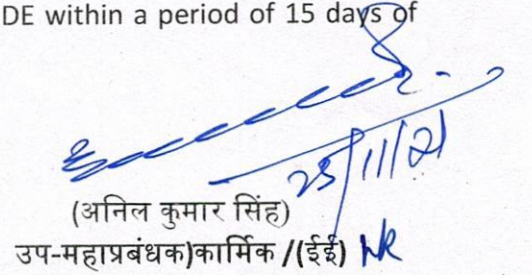 DE within a period of 15 days of
25/11/21
(अनिल कुमार सिंह)
उप-महाप्रबंधक)कार्मिक /(ईई)